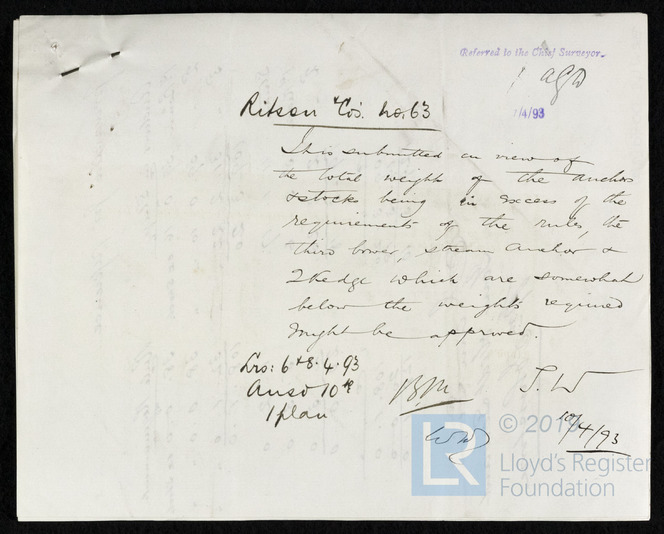 Referred to the Chief Surveyor.
/4/93
Ritson & Co's. No. 63
It is submitted in view of
the total weight of the anchors
& stocks being in excess of the
requirements of the rules, the
third bower, stream anchor &
2 Kedge which are somewhat
below the weights required
might be approved.
Lrs: 6 & 8.4.93
Ansd 10th
1 plan
J.W
10/4/93
© 2019
LR
Lloyd's Register
Foundation